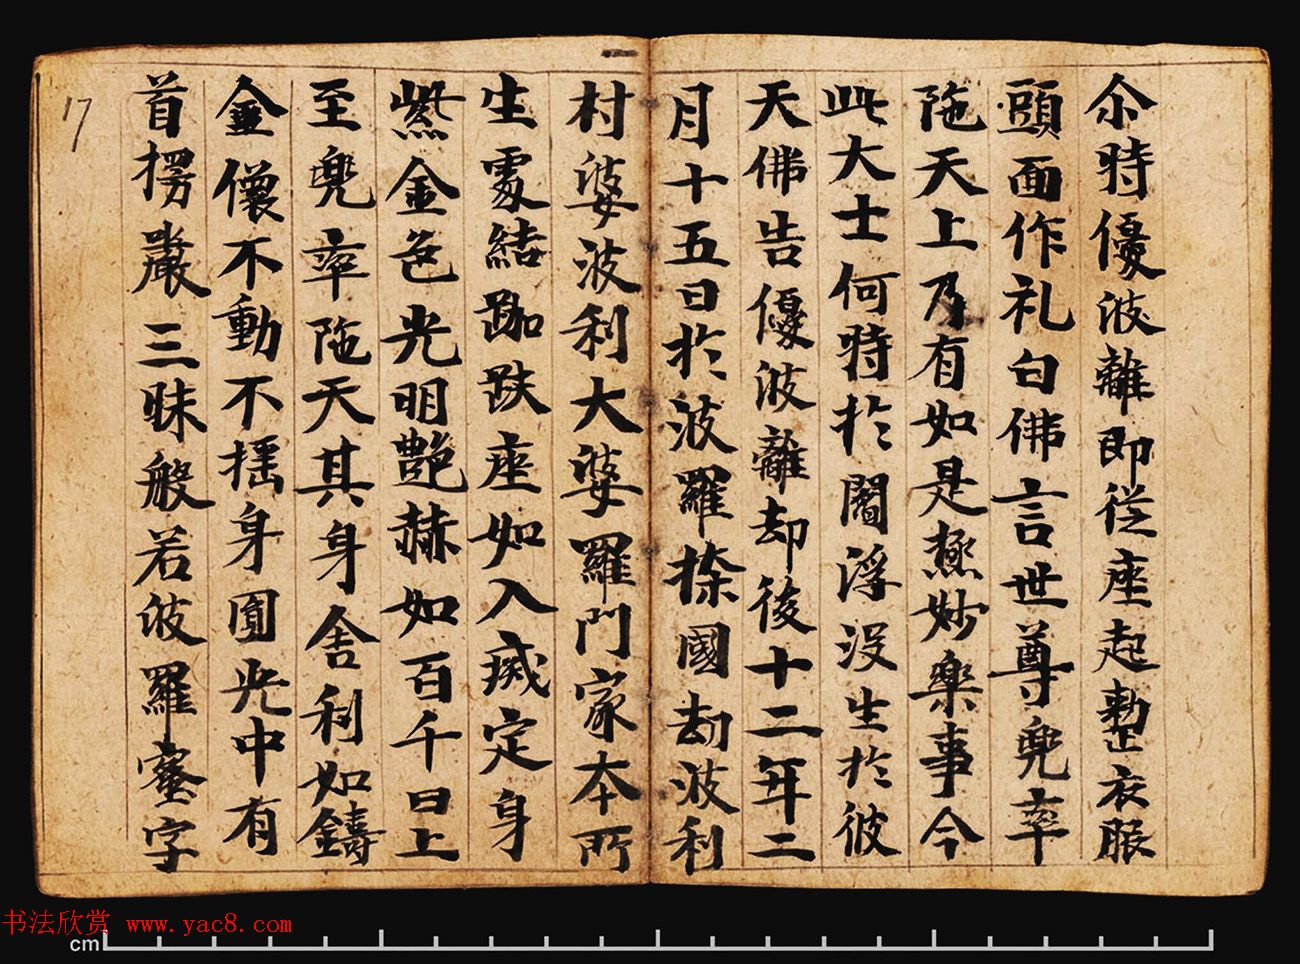 尒時優波離即從座起整衣服
頭面作礼白佛言世尊兜率
陁天上乃有如是極妙樂事今
此大士何時於閻浮没生於彼
天佛告優波離却後十二年二
月十五日於波羅捺國劫波利
村婆波利大婆羅門家本所
生處結跏趺座如入滅定身
紫金色光明艶赫如百千日上
至兜率陁天其身舎利如鑄
金儴不動不摇身圎光中有
首楞嚴三昧般若波羅蜜字
17
书法欣赏 www.yac8.com
cm